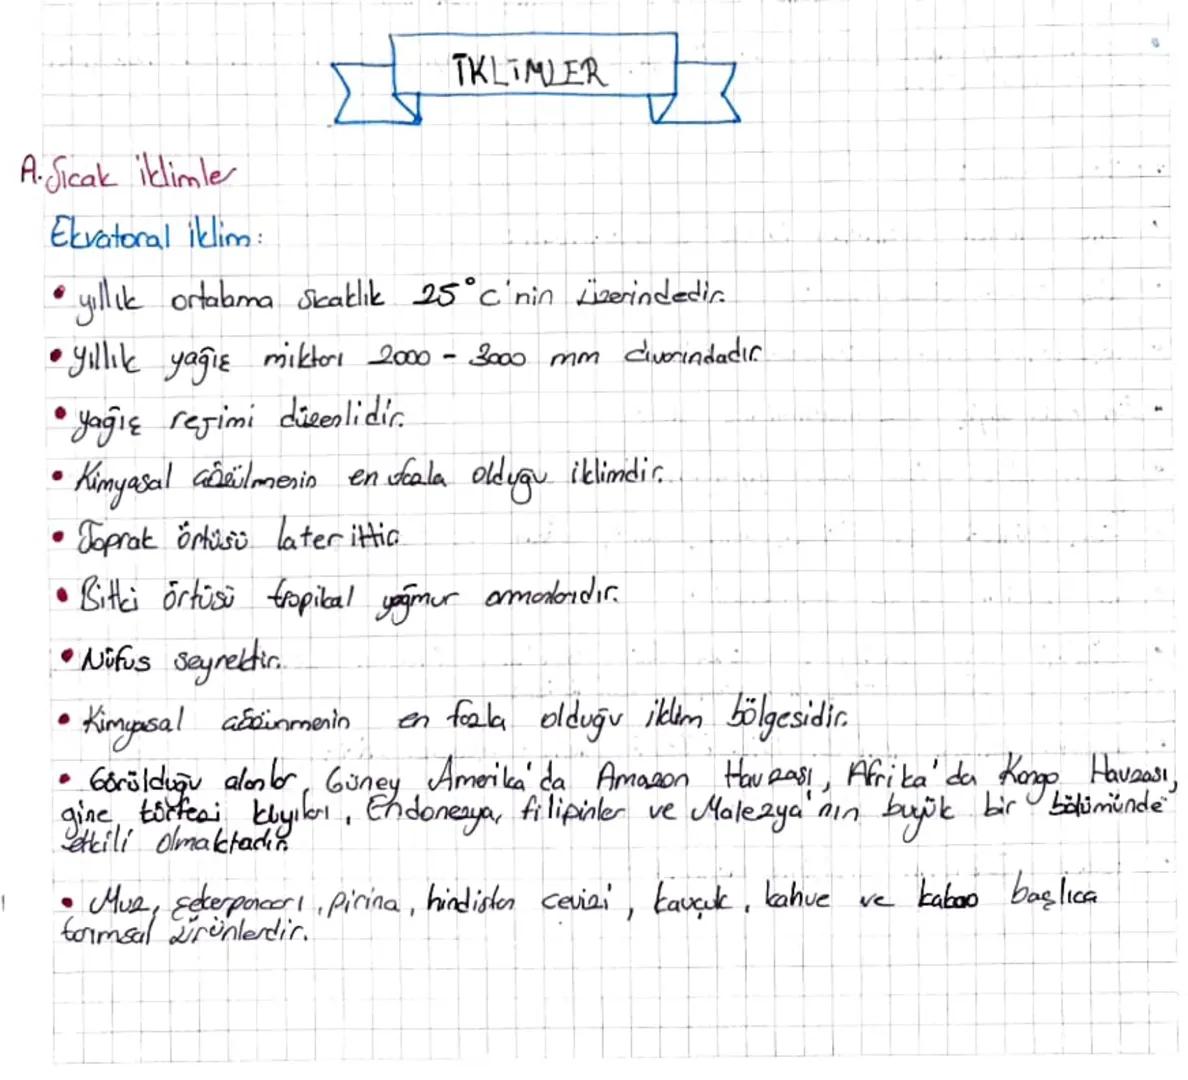 İKLİMLER
A. Sıcak iklimler
Ekvatoral iklim:
• yıllık ortalama sıcaklık 25°C'nin üzerindedir.
• Yıllık yağış miktarı 2000 - 3000 mm civarındadır.
• yağış rejimi düzenlidir.
• Kimyasal çözülmenin en fazla olduğu iklimdir.
• Toprak örtüsü laterittir
• Bitki örtüsü tropikal yağmur ormanlarıdır.
• Nüfus seyrektir.
• Kimyasal çözünmenin en fazla olduğu iklim bölgesidir.
• Görüldüğü alanlar, Güney Amerika'da Amazon Havzası, Afrika'da Kongo Havzası,
gine körfezi kıyıları, Endonezya, filipinler ve Malezya'nın büyük bir bölümünde
etkili olmaktadır.
• Muz, şekerpancarı, pirinç, hindistan cevizi, kauçuk, kahve ve kakao başlıca
tarımsal ürünlerdir.